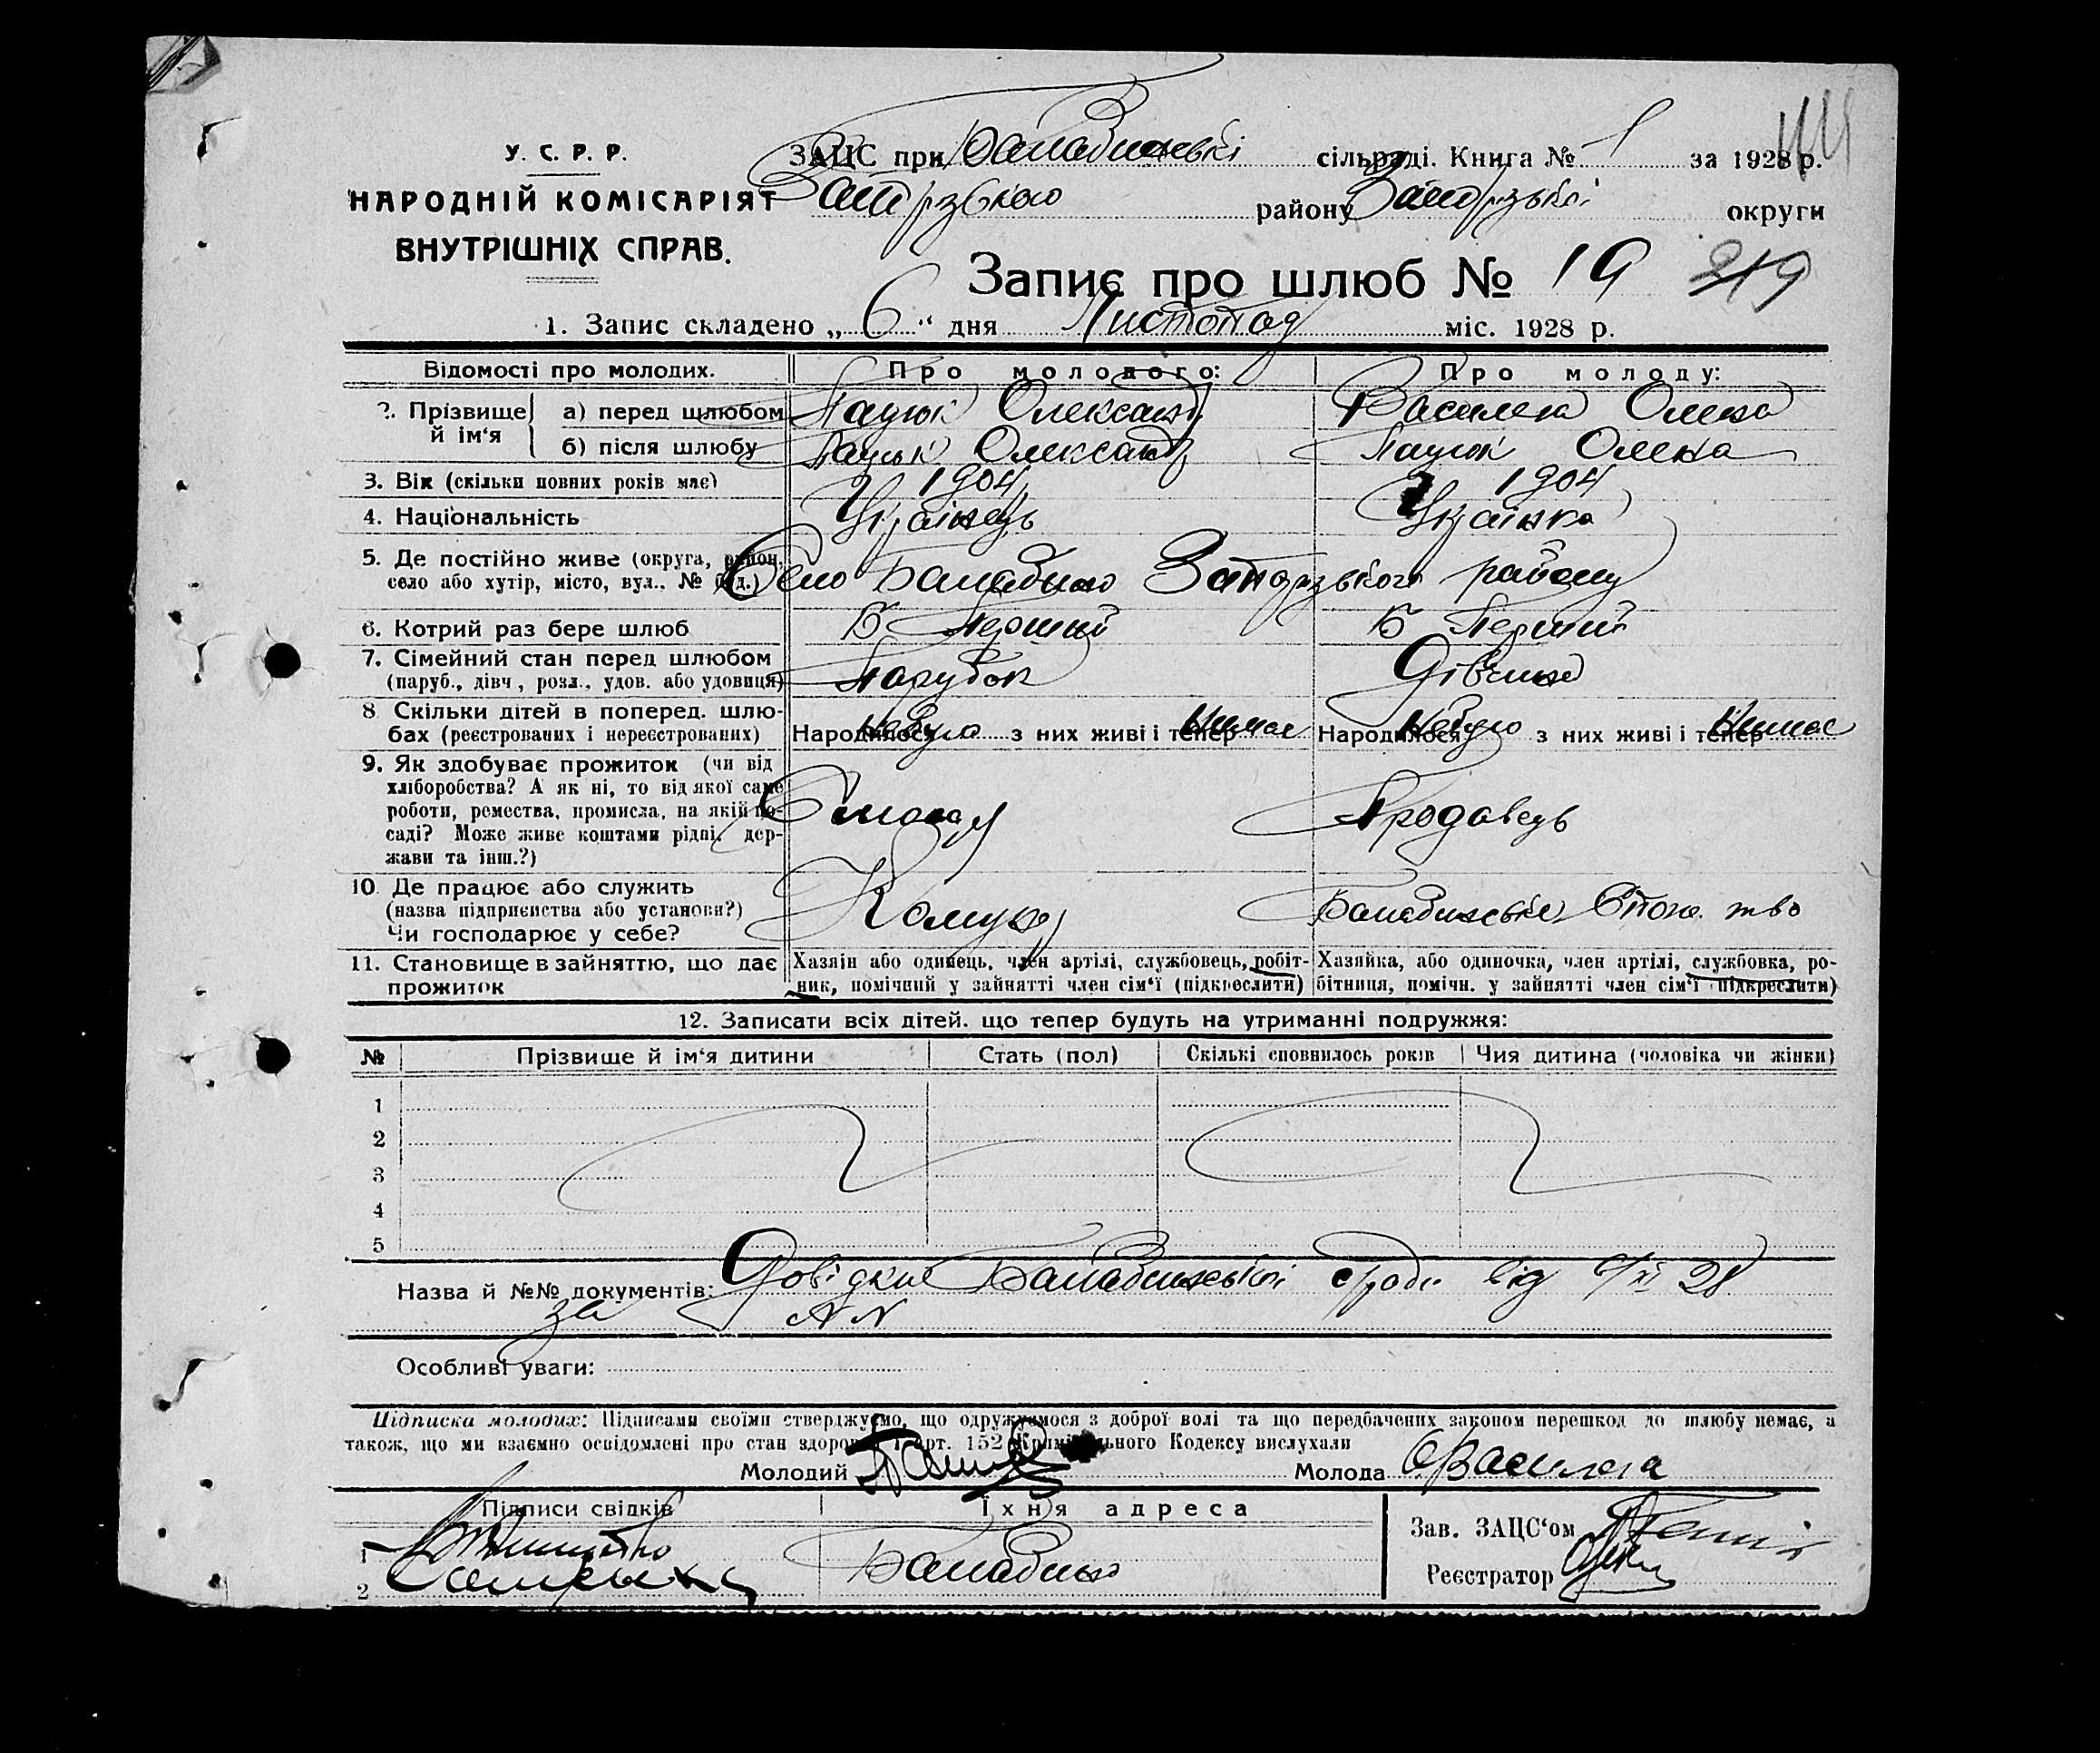 У. С. Р. Р.
НАРОДНІЙ КОМІСАРІЯТ
ВНУТРІШНІХ СПРАВ.
ЗАЦС при Балабинські сільраді. Книга № 1 за 1928 р.
району округи
Запис про шлюб № 19 219
1. Запис складено „ 6 “ дня Листопад міс. 1928 р.
Відомості про молодих. Про молодого: Про молоду:
2. Прізвище й ім‘я а) перед шлюбом Пацюк Олександр Василега Олена
б) після шлюбу Пацюк Олександр Пацюк Олена
3. Вік (скільки повних років має) 1904 1904
4. Національність Українець Українка
5. Де постійно живе (округа, район,
село або хутір, місто, вул., № буд.) Село Балабино Запорізького району
6. Котрий раз бере шлюб Б Перший Б Перший
7. Сімейний стан перед шлюбом
(паруб., дівч., розл., удов. або удовиця) Парубок Дівчина
8 Скільки дітей в поперед. шлю-
бах (реєстрованих і нереєстрованих) Народилося Небуло з них живі і тепер Немає Народилося Небуло з них живі і тепер Немає
9. Як здобуває прожиток (чи від
хліборобства? А як ні, то від якої саме
роботи, ремества, промисла, на якій по-
саді? Може живе коштами рідні, дер-
жави та інш.?) Продавець
10. Де працює або служить
(назва підприємства або установи?)
Чи господарює у себе? Балабинське Спож. т-во
11. Становище в зайняттю, що дає
прожиток
Хазяін або одинець, член артілі, службовець, робіт-
ник, помічний у зайнятті член сім‘ї (підкреслити)
Хазяйка, або одиночка, член артілі, службовка, ро-
бітниця, помічн. у зайнятті член сім‘ї (підкреслити)
12. Записати всіх дітей. що тепер будуть на утриманні подружжя:
№ Прізвище й ім‘я дитини Стать (пол) Скількі сповнилось років Чия дитина (чоловіка чи жінки)
1
2
3
4
5
Назва й №№ документів: Довідки Балабинської с/ради від 6/XI 28
за NN
Особливі уваги:
Підписка молодих: Підписами своїми стверджуємо, що одружуємося з доброї волі та що передбачених законом перешкод до шлюбу немає, а
також, що ми взаємно освідомлені про стан здоровья і арт. 152 Кримінального Кодексу вислухали
Молодий Молода О Василега
Підписи свідків Їхня адреса
1
2
Балабино
Зав. ЗАЦС‘ом
Реєстратор